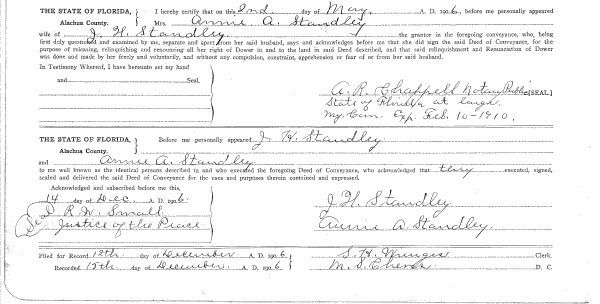 THE STATE OF FLORIDA, } I hereby certify that on this 2nd day of May, A. D. 1906, before me personally appeared
Alachua County. Mrs. Annie A. Standley
wife of J. H. Standley the grantor in the foregoing conveyance, who, being
first duly questioned and examined by me, separate and apart from her said husband, says and acknowledges before me that she did sign the said Deed of Conveyance, for the
purpose of releasing, relinquishing and renouncing all her right of Dower in and to the land in said Deed described, and that said relinquishment and Renunciation of Dower
was done and made by her freely and voluntarily, and without any compulsion, constraint, apprehension or fear of or from her said husband.
In Testimony Whereof, I have hereunto set my hand
and Seal.
A. R. Chappell Notary Public [SEAL]
State of Florida at large.
My Com. Exp. Feb. 10-1910.
THE STATE OF FLORIDA, } Before me personally appeared J. H. Standley
Alachua County.
and Annie A. Standley
to me well known as the identical persons described in and who executed the foregoing Deed of Conveyance, who acknowledged that they executed, signed,
sealed and delivered the said Deed of Conveyance for the uses and purposes therein contained and expressed.
Acknowledged and subscribed before me this,
14 day of Dec. A. D. 1906.
Seal R. W. Small
Justice of the Peace
J. H. Standley
Annie A. Standley.
Filed for Record 12th day of December A. D. 1906 } S. H. Wienges Clerk.
Recorded 15th day of December. A. D. 1906 M. S. Cheves D. C.